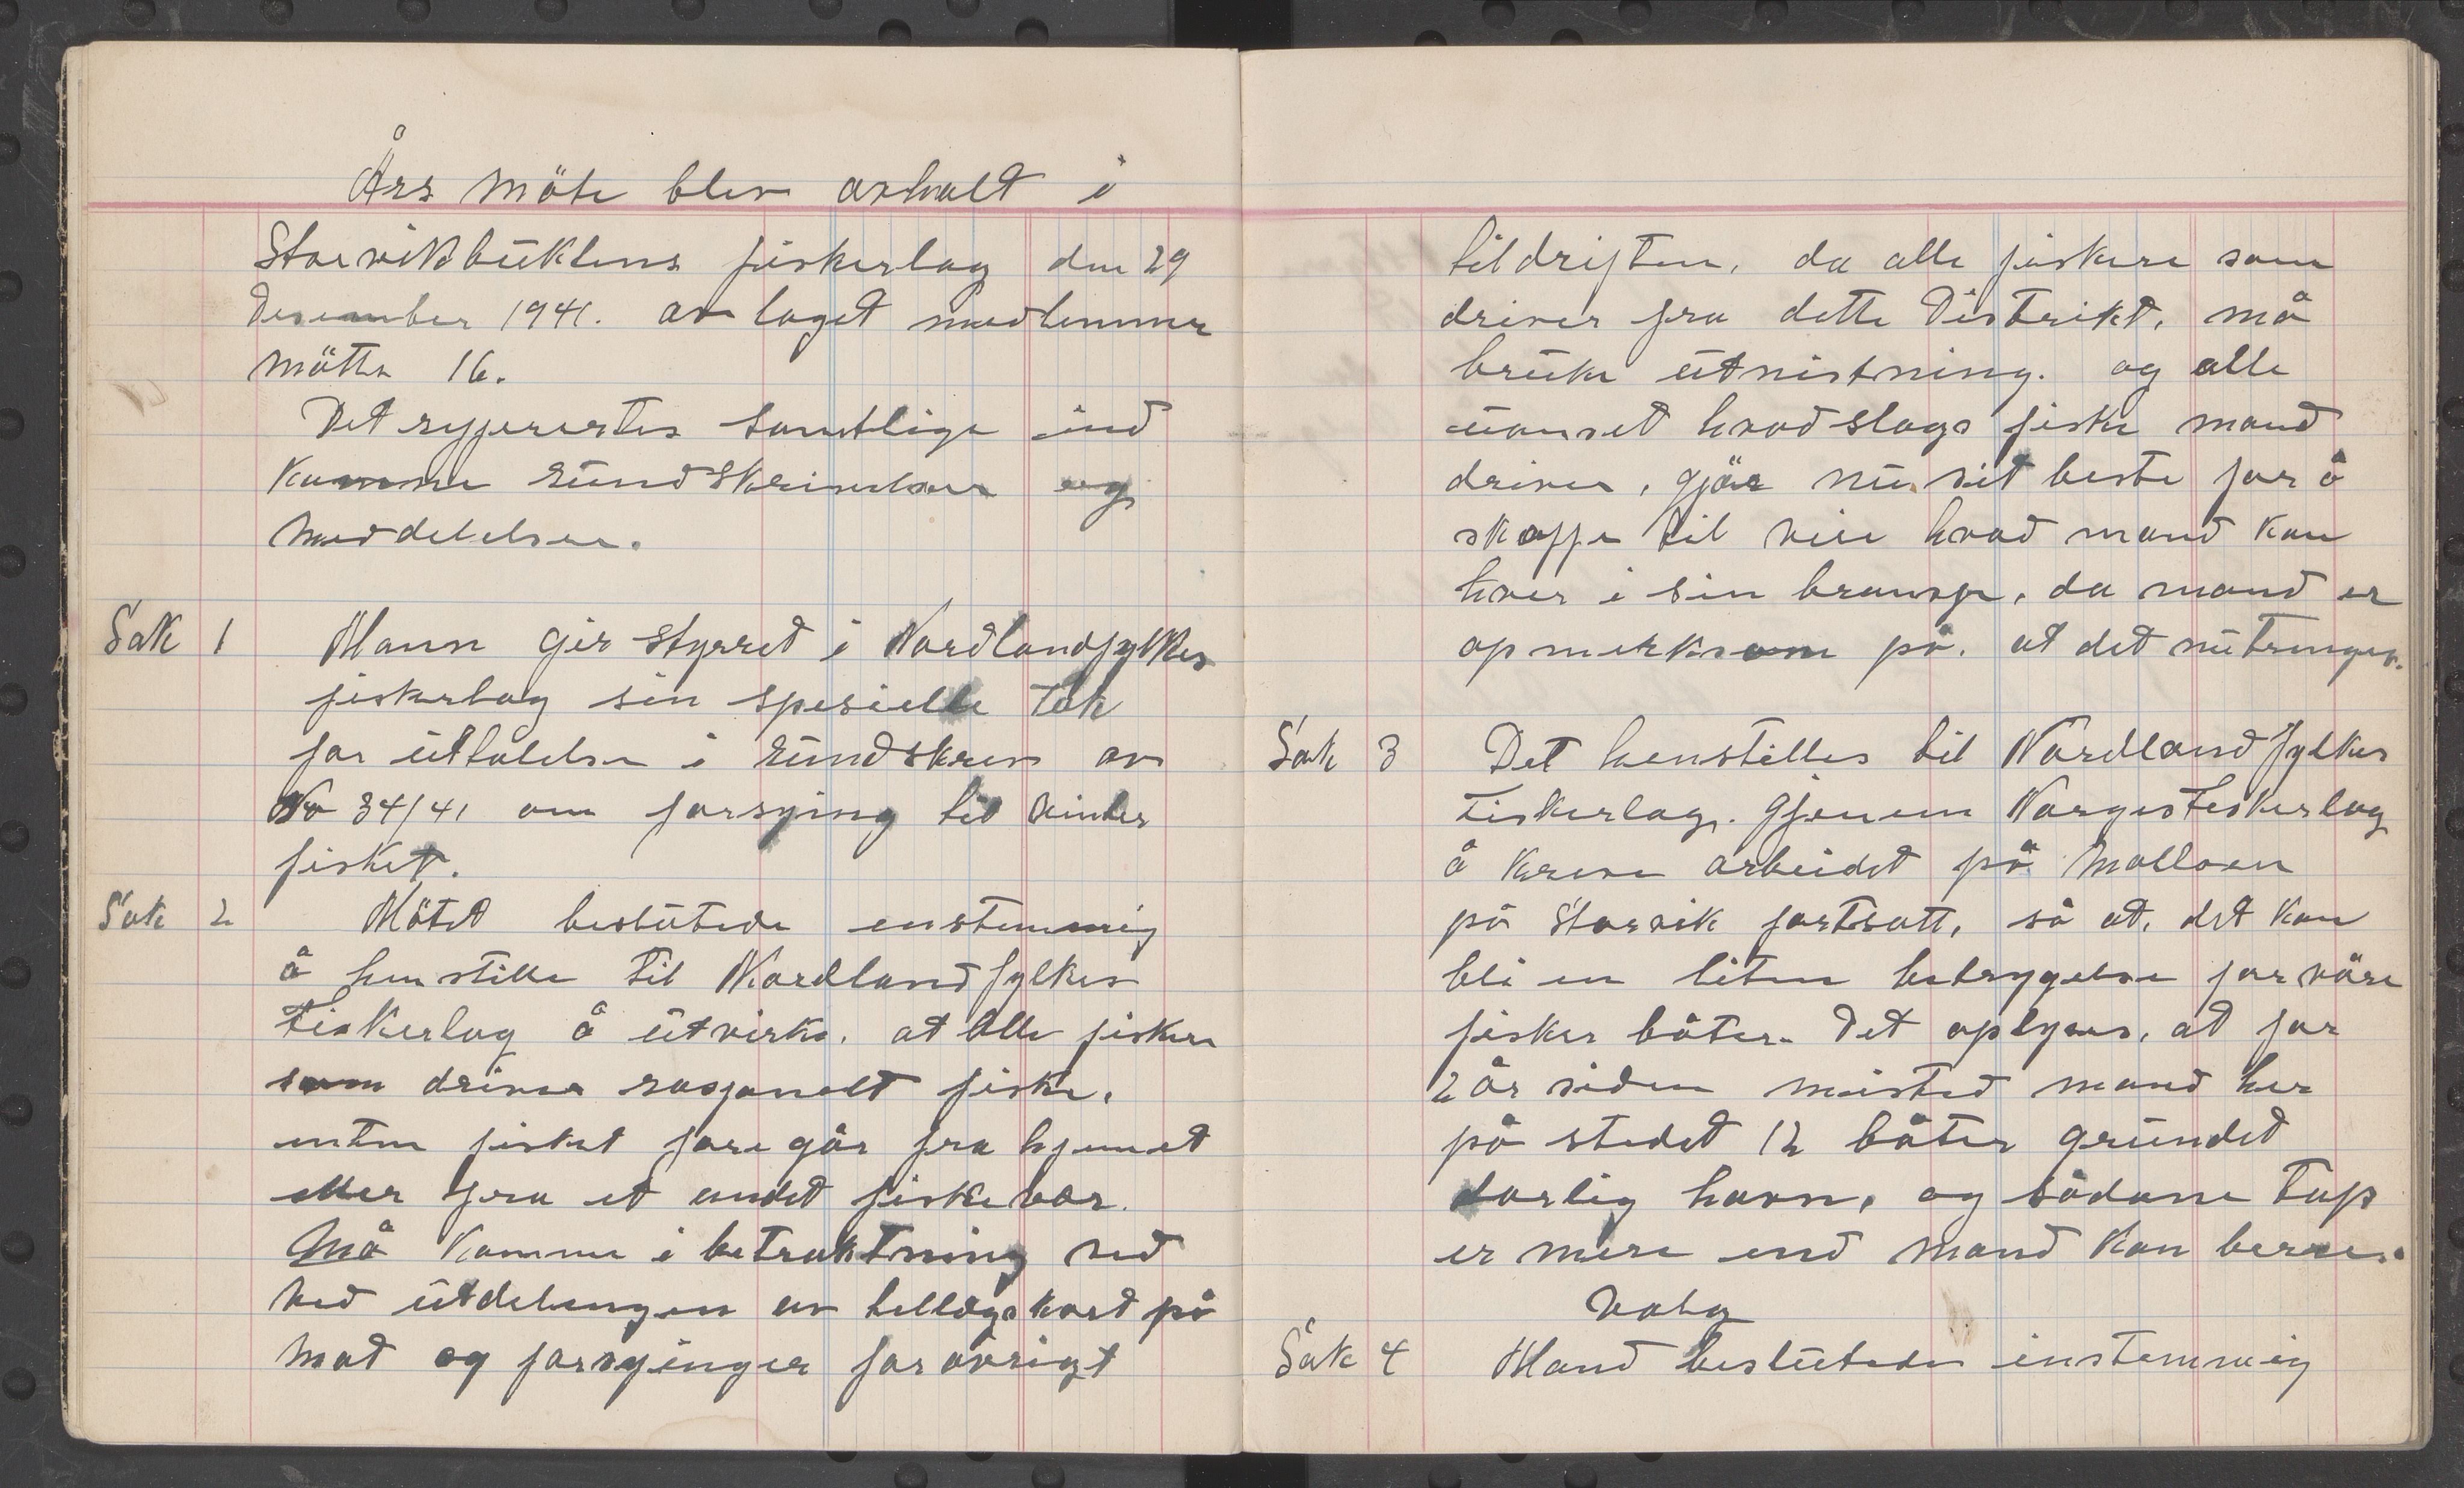 Års möte blev avhalt i
Storvikbuktens fiskerlag den 29
Desember 1941. av laget medlemmer
mötte 16.
Det refererertes samtlige ind
komne rundskrivelser og
meddelelser.
Sak 1 Mann gir styrret i Nordlandfylkes
fiskerlag sin spesielle Tak
for uttalelse i rundskrev av
No 34/41 om forsying til Vinter
fisket.
Sak 2 Mötet beslutede enstemmig
å henstille til Nordland fylkes
Fiskerlag å utvirke. at alle fiskere
som driver rasjonelt fiske.
enten fisket foregår fra hjemet
eller fra et andet fiskevær.
Må komme i betraktning ved
ved utdelingen av tillägskort på
mat og forsyinger forövrigt
tildriften. da alle fiskere som
driver fra dette Distrikt. må
bruke utnistning. og alle
uanset hvad slags fiske mand
driver, gjör nu sit beste for å
skaffe til veie hvad mand kan
hver i sin bransje, da mand er
opmerksom på. at det nu trenges.
Sak 3 Det henstilles til Nordland fylkes
Fiskerlag. gjenem Norges Fiskerlag
å kreve arbeidet på Malloen
på Storvik fortsatt, så at. det kan
bli en liten betrygelse for våre
fisker båter. Det oplyses, at for
2 år siden misted mand her
på stedet 12 båter grundet
dorlig havn, og sådane Tap
er mere end mand kan berre.
Valg
Sak 4 Mand beslutede instemmig